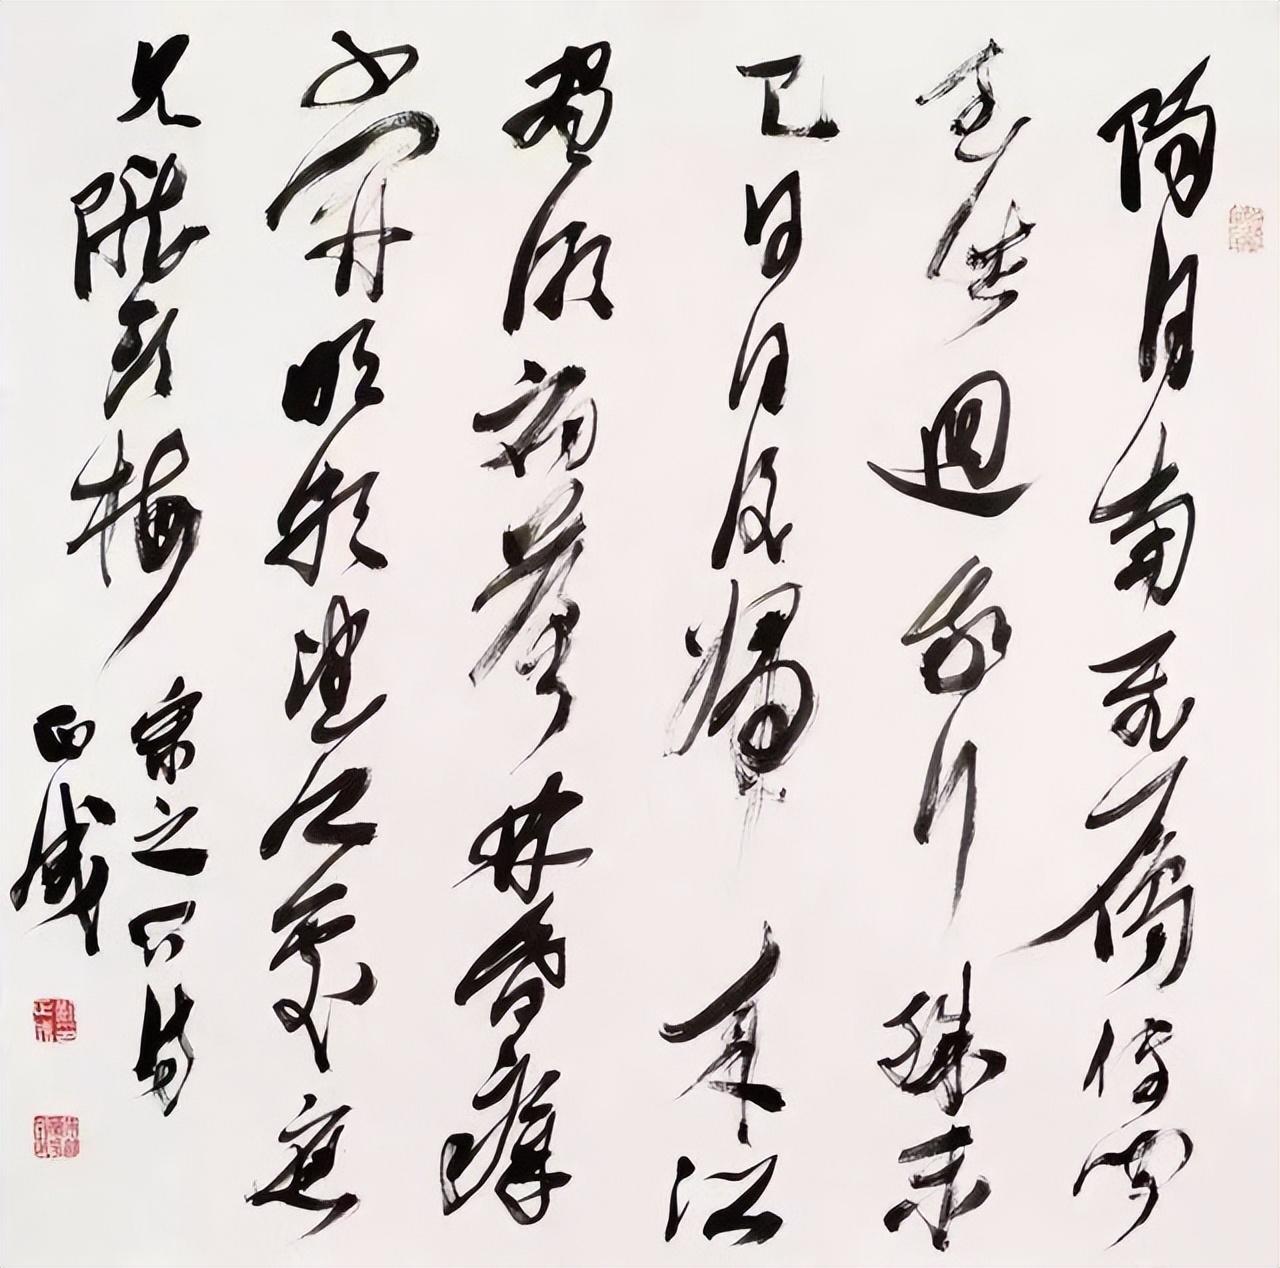 陽月南飛雁傳聞
至此迴我行殊未
已何日復歸來江
靜潮初落林昏瘴
不開明朝望鄉處應
見隴頭梅 宋之問詩
正成